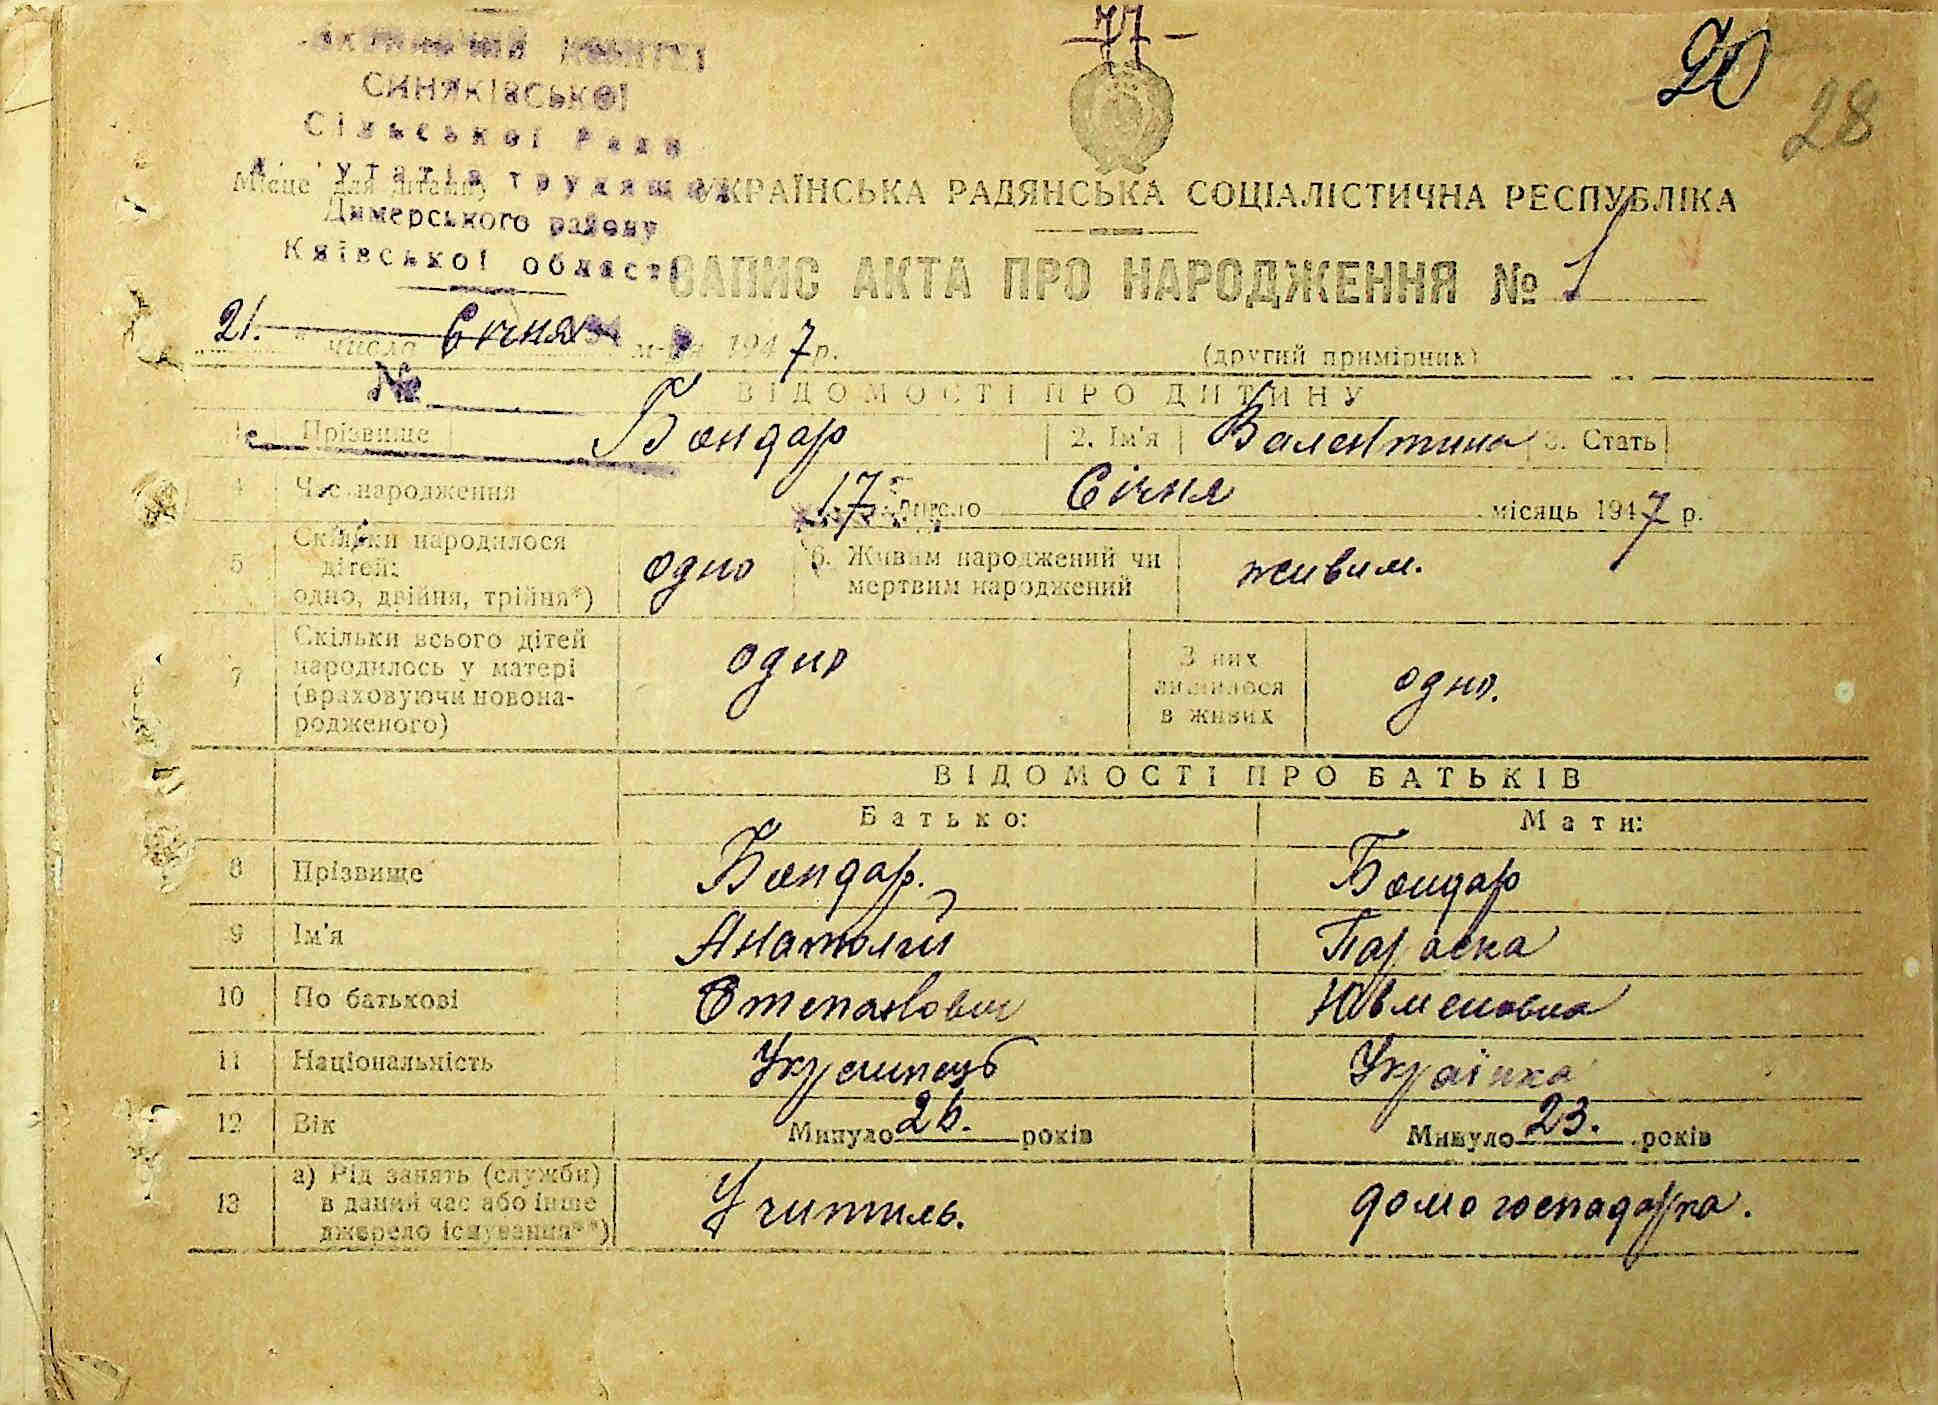 77
20
28
КОМІТЕТ
СИНЯКІВСЬКОЇ
Сільської Ради
депутатів трудящих
Димерського району
Київської області
Місце для штампу
УКРАЇНСЬКА РАДЯНСЬКА СОЦІАЛІСТИЧНА РЕСПУБЛІКА
ЗАПИС АКТА ПРО НАРОДЖЕННЯ № 1
21. число Січня м-ця 1947 р.
(другий примірник)
№
ВІДОМОСТІ ПРО ДИТИНУ
1. Прізвище Бондар 2. Ім'я Валентина 3. Стать
4 Час народження 17 число Січня місяць 1947 р.
5 Скільки народилося дітей: одно, двійня, трійня*) одно 6. Живим народжений чи мертвим народжений живим.
7 Скільки всього дітей народилось у матері (враховуючи новонародженого) одно З них лишилося в живих одно.
ВІДОМОСТІ ПРО БАТЬКІВ
Батько: Мати:
8 Прізвище Бондар. Бондар
9 Ім'я Анатолій Параска
10 По батькові СтепановичЮвменовна
11 Національність Українець Українка
12 Вік Минуло 26. років Минуло 23. років
13 а) Рід занять (служби) в даний час або інше джерело існування**) Учитиль. домогосподарка.